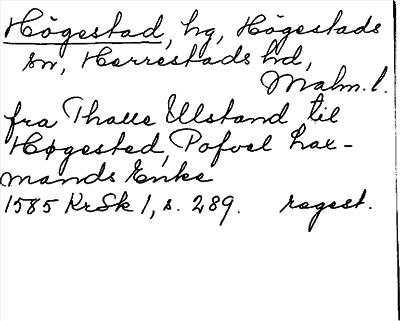 Högestad, hg, Högestads
sn, Herrestads hd,
Malm. l.
fra Thale Ulstand til
Høgested, Pofvel Lax-
mands Enke
1585 KrSk 1, s. 289. regest.